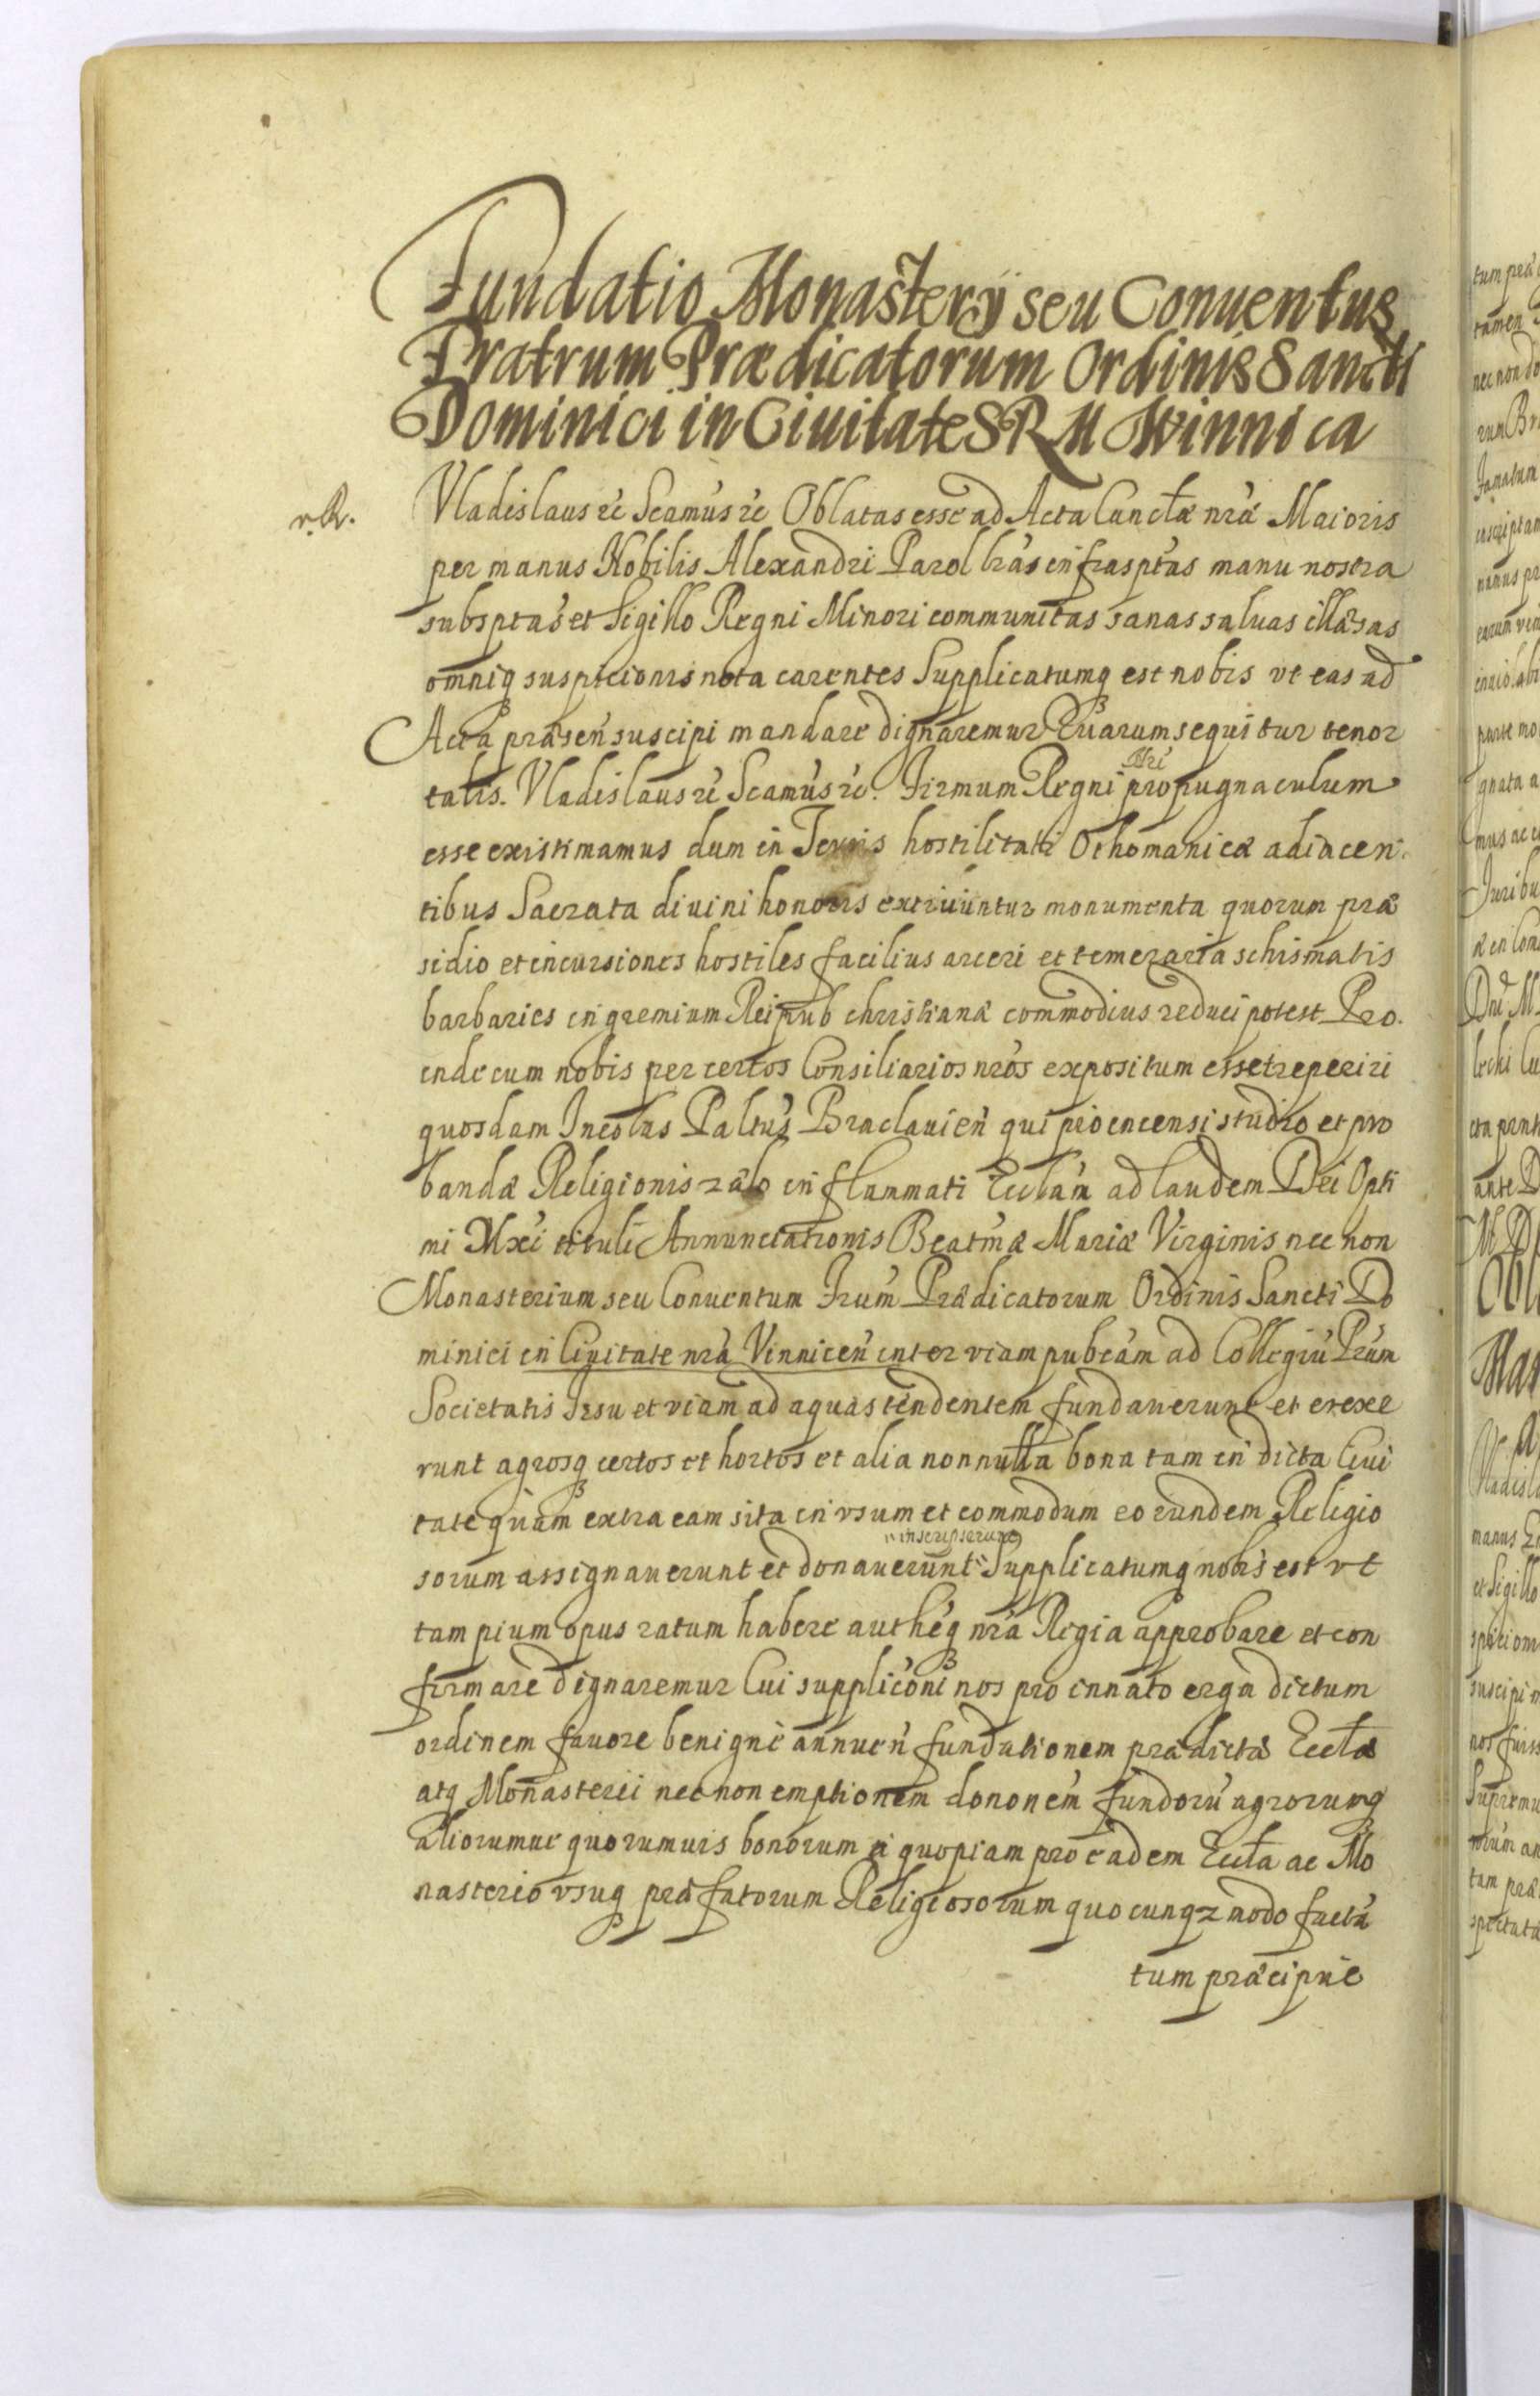 Fundatio Monasterÿ seu Conuentus
Fratrum Prædicatorum Ordinis Sancti
Dominici in Ciuitate SRM Winnica
Vladislaus &c Scamus &c Oblatas esse ad Acta Canctæ nræ Maioris
per manus Nobilis Alexandri Parol lras infrasptas manu nostra
subsptas et Sigillo Regni Minori communitas sanas saluas illæsas
omniq suspicionis nota carentes Supplicatumq est nobis vt eas ad
Acta præsen suscipi mandare dignaremur Quarum sequitur tenor
talis. Vladislaus &c Scamus &c. Firmum Regni Nri propugnaculum
esse existimamus dum in Terris hostilitati Othomanicæ adiacen
tibus Sacrata diuini honoris extruuntur monumenta quorum præ
sidio et incursiones hostiles facilius arceri et temeraria schismatis
barbaries in gremium Reipub christianæ commodius reduci potest Pro
inde cum nobis per certos Consiliarios nros expositum esset reperiri
quosdam Incolas Paltus Braclauien qui pio incensi studio et pro
bandæ Religionis zælo inflammati Ecclam ad laudem Dei Opti
mi Mxi tituli Annunctationis Beatmæ Mariæ Virginis nec non
Monasterium seu Conuentum Frum Prædicatorum Ordinis Sancti Do
minici in Ciuitate nra Vinnicen inter viam pubcam ad Collegiu Prum
Societatis Jesu et viam ad aquas tendentem fundauerunt et erexe
runt agrosq certos et hortos et alia nonnulla bona tam in dicta Ciui
tate quam extra eam sita in vsum et commodum eorundem Religio
sorum assignauerunt et donauerunt inscripserunt Supplicatumq nobis est vt
tam pium opus ratum habere autheq nra Regia approbare et con
firmare dignaremur Cui suppliconi nos pro innato erga dictum
ordinem fauore benigne annuen fundationem prædictæ Ecclæ
atq Monasterii nec non emptionem dononem fundoru agrorumq
aliorumue quorumuis bonorum a quopiam pro eadem Eccla ac Mo
nasterio vsuq præfatorum Religiosorum quocunqz modo facta
tum præcipue